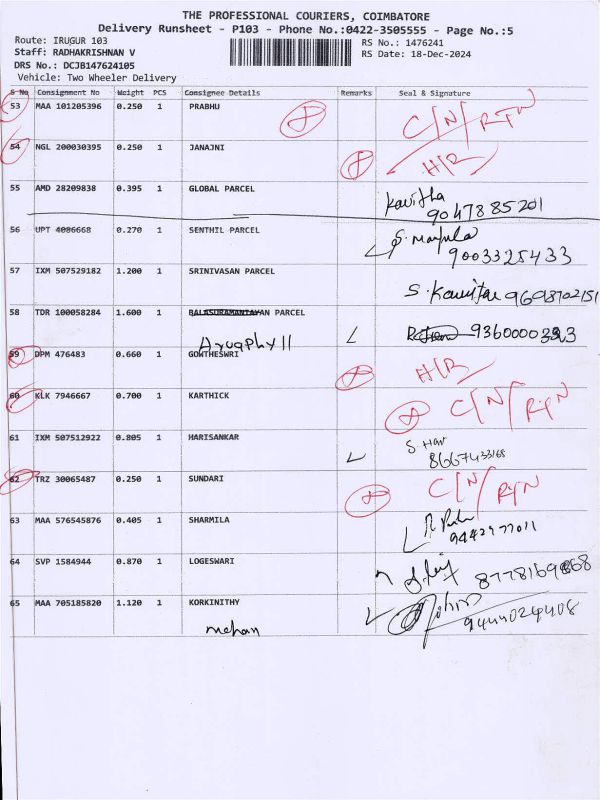 THE PROFESSIONAL COURIERS, COIMBATORE
Delivery Runsheet - P103 - Phone No.:0422-3505555 - Page No.:5
Route: IRUGUR 103
RS No.: 1476241
Staff: RADHAKRISHNAN V
RS Date: 18-Dec-2024
DRS No.: DCJB147624105
Vehicle: Two Wheeler Delivery
S No Consignment No Weight PCS Consignee Details Remarks Seal & Signature
53 MAA 101205396 0.250 1 PRABHU C/N/RTN
54 NGL 200030395 0.250 1 JANAJNI H/R
55 AMD 28209838 0.395 1 GLOBAL PARCEL Kavitha
9047885201
56 UPT 4086668 0.270 1 SENTHIL PARCEL
9003325433
57 IXM 507529182 1.200 1 SRINIVASAN PARCEL S. Kavitha 9698702151
58 TDR 100058284 1.600 1 BALASURAMANIAYAN PARCEL
59 DPM 476483 0.660 1 GOWTHESWRI H/R
60 KLK 7946667 0.700 1 KARTHICK C/N/RTN
61 IXM 507512922 0.805 1 HARISANKAR S. Hari
8667433168
62 TRZ 30065487 0.250 1 SUNDARI C/N/RTN
63 MAA 576545876 0.405 1 SHARMILA
9442977011
64 SVP 1584944 0.870 1 LOGESWARI
65 MAA 705185820 1.120 1 KORKINITHY
mohan 9444024408